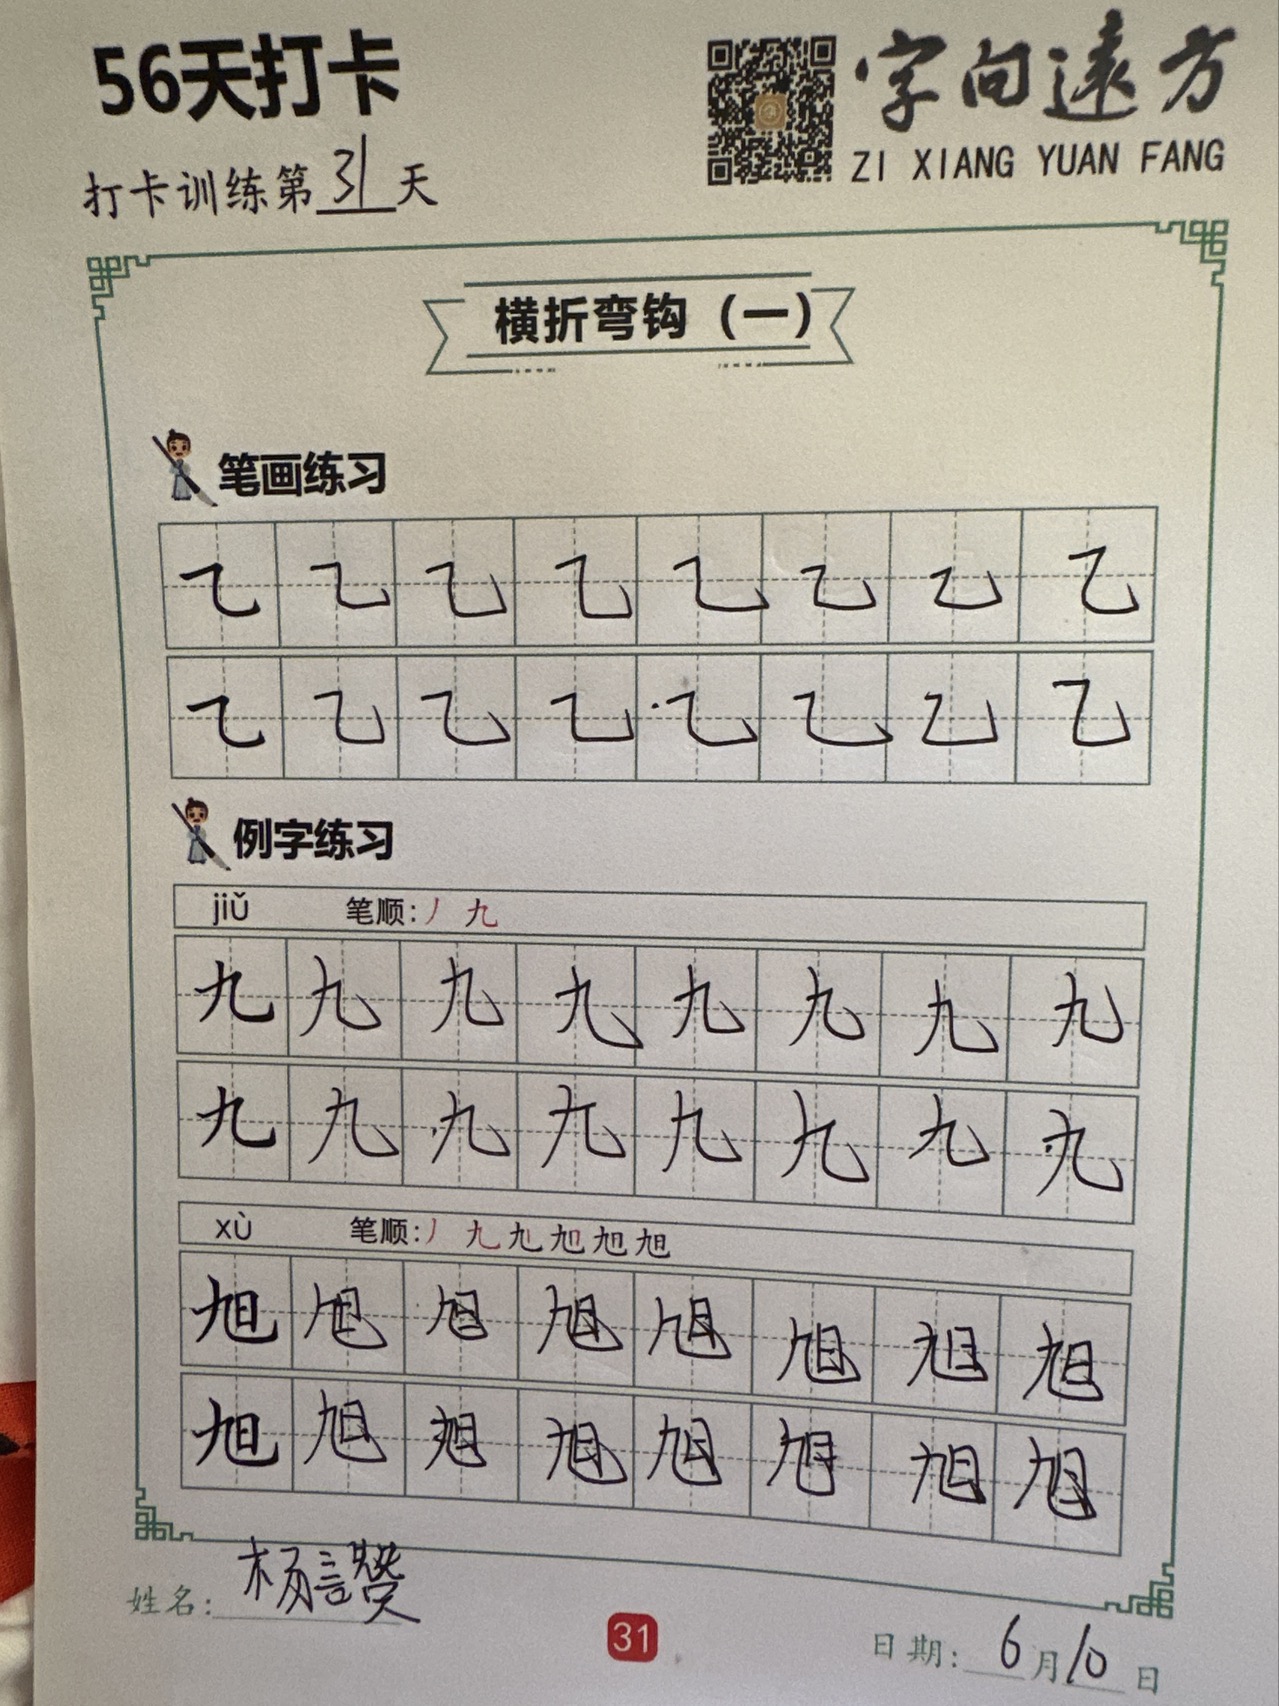 56天打卡
字向远方
ZI XIANG YUAN FANG
打卡训练第31天
横折弯钩（一）
笔画练习
㇈ ㇈ ㇈ ㇈ ㇈ ㇈ ㇈ ㇈
㇈ ㇈ ㇈ ㇈ ㇈ ㇈ ㇈ ㇈
例字练习
jiǔ 笔顺：丿 九
九 九 九 九 九 九 九 九
九 九 九 九 九 九 九 九
xù 笔顺：丿 九 旭
旭 旭 旭 旭 旭 旭 旭 旭
旭 旭 旭 旭 旭 旭 旭 旭
姓名：杨言
31
日期：6月10日